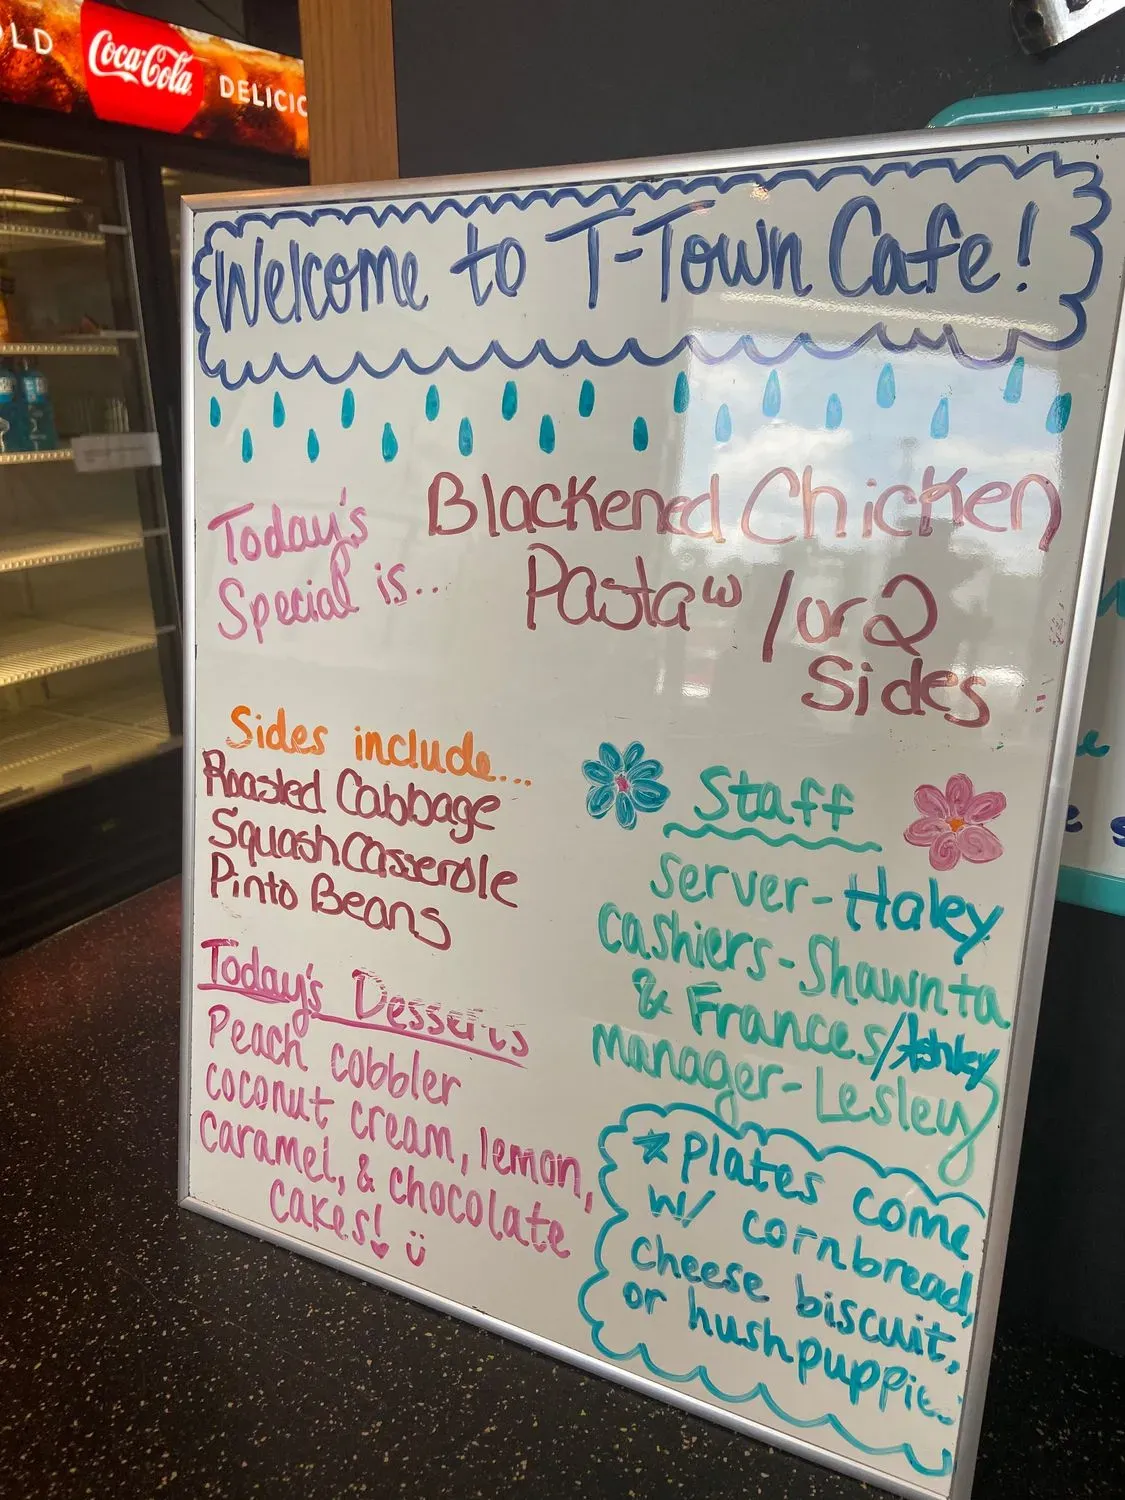 OLD
Coca-Cola
DELICIO
Welcome to T-Town Cafe!
Today's
Special is...
Blackened Chicken
Pasta w/ 1 or 2
Sides
Sides include...
Roasted Cabbage
Squash Casserole
Pinto Beans
Today's Desserts
Peach cobbler
coconut cream, lemon,
caramel, & chocolate
cakes!
Staff
Server-Haley
Cashiers-Shawnta
& Frances/Ashley
Manager-Lesley
*Plates come
w/ cornbread,
cheese biscuit,
or hushpuppies